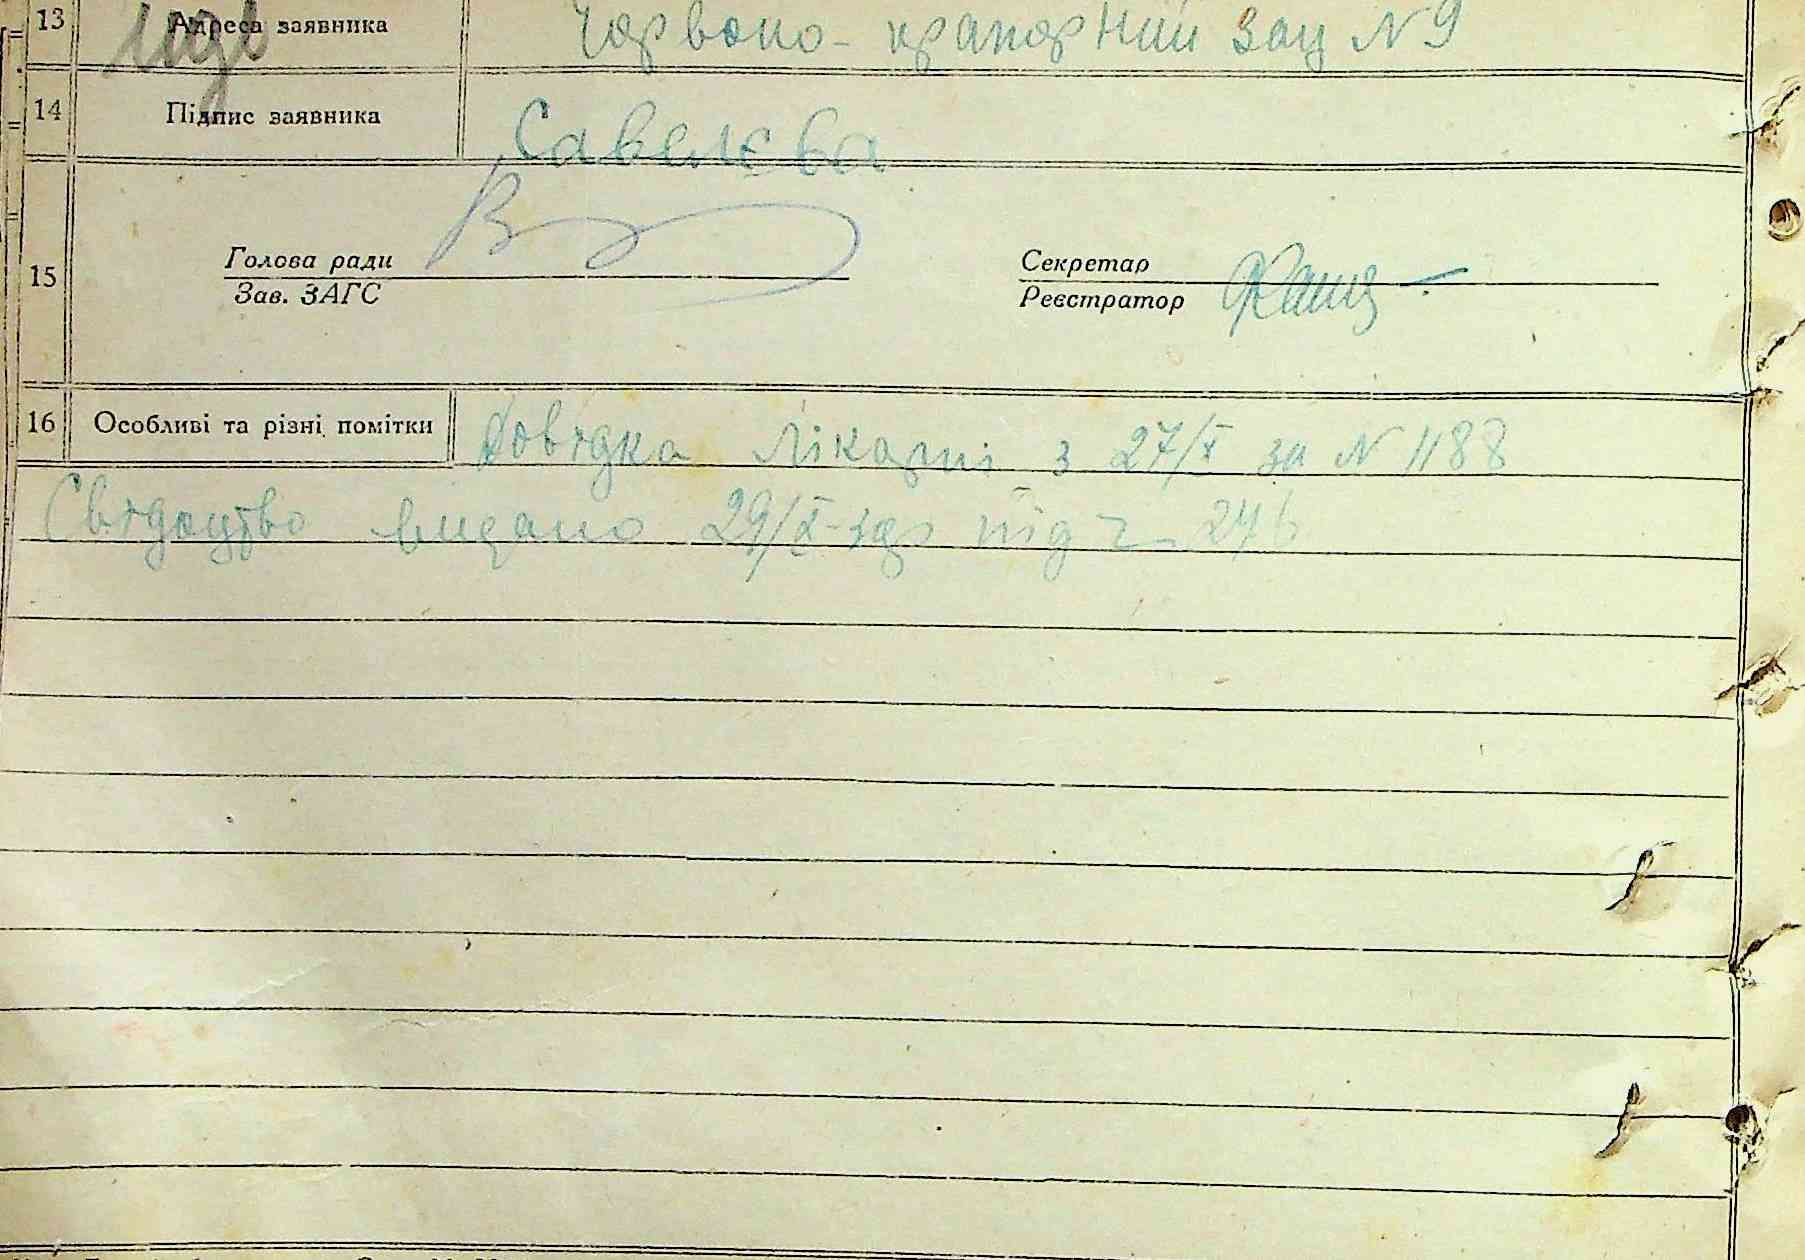 13 Адреса заявника Червоно-прапорний зау N 9
14 Підпис заявника Савелєва
15 Голова ради
Зав. ЗАГС
Секретар
Реєстратор
16 Особливі та різні помітки Довідка Лікарні з 27/X за N 1188
Свідоцтво видано 29/X-39р під 276